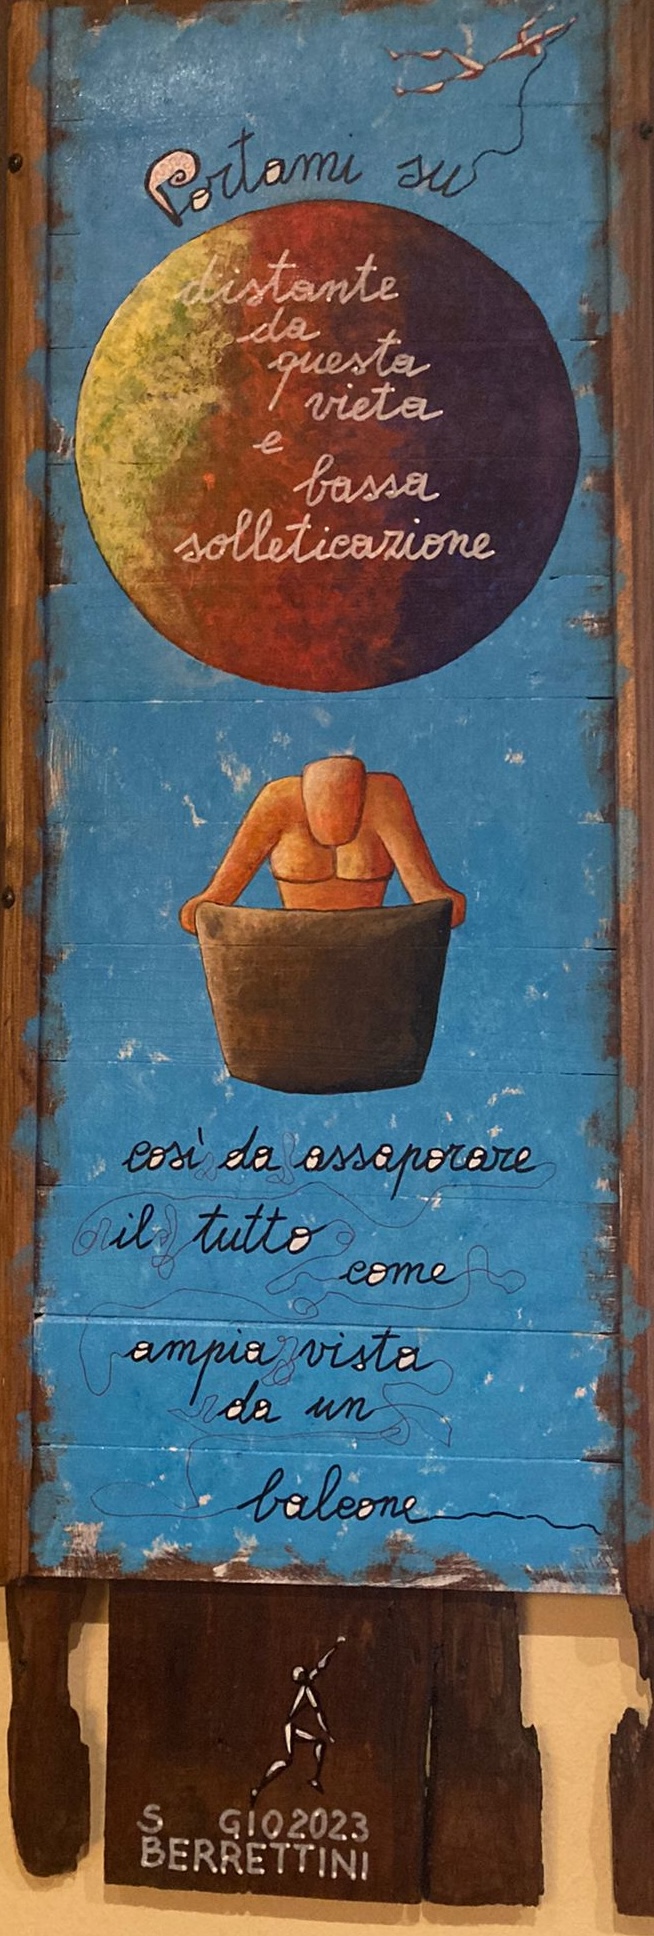 Portami su
distante
da
questa
vieta
e
bassa
solleticazione
così da assaporare
il tutto
come
ampia vista
da un
balcone
S GIO2023
BERRETTINI